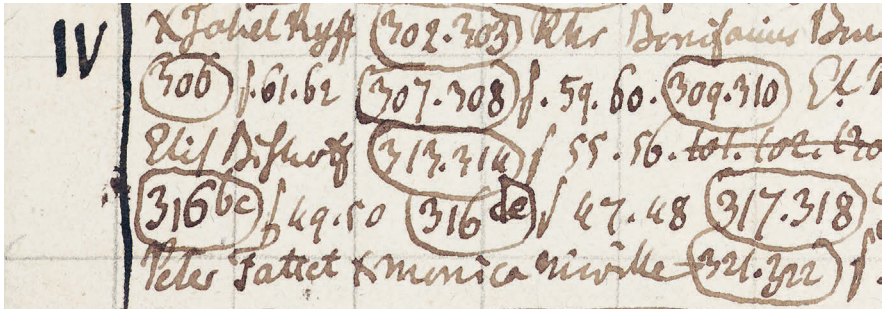 IV x Isabel Ryff 302.303 Rhr Bonifacius
306 f. 61.62 307.308 f. 59. 60. 309.310 El.
Elis Bischoff 313.314 f 55.56. tot. tot.
316bc f 49.50 316 de f 47.48 317.318
Peter Fattet x monica 321.322 f